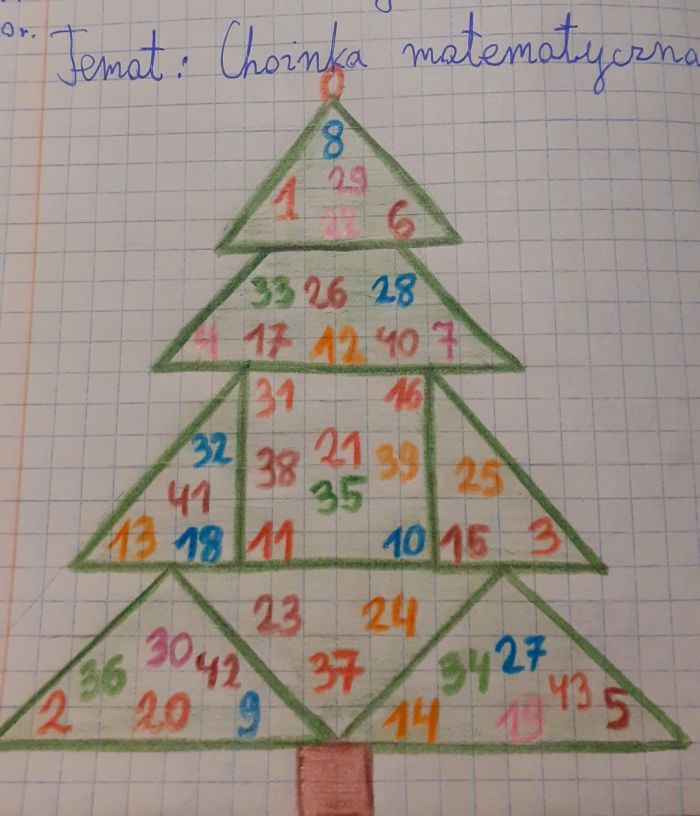 or.
Temat: Choinka matematyczna
8
29
1 22 6
33 26 28
4 17 12 40 7
31 16
32 38 21 39 25
41 35
13 18 11 10 15 3
23 24
30 42 37 34 27
36 43
2 20 9 14 19 5